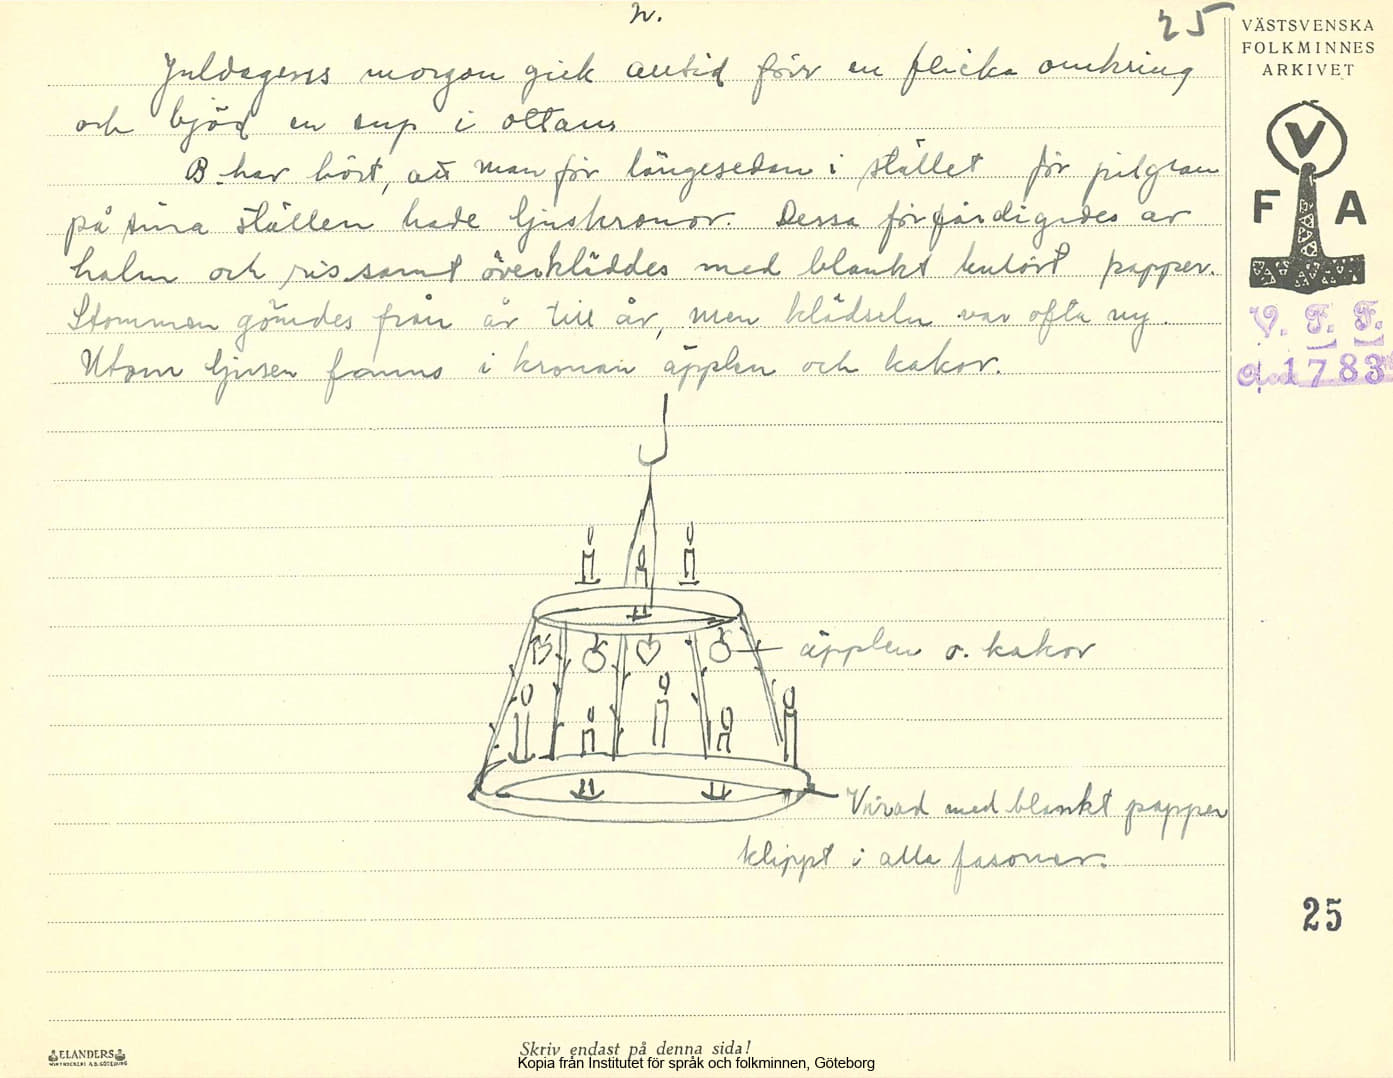 n.
25
VÄSTSVENSKA
FOLKMINNES
ARKIVET
V
F A
V. F. F.
1783
Juldagens morgon gick alltid förr en flicka omkring
och bjöd en sup i ottans
B. har hört, att man för längesedan i stället för julgran
på sina ställen hade ljuskronor. Dessa förfärdigades av
halm och ris samt överkläddes med blankt kulört papper.
Stommen gömdes från år till år, men klädseln var ofta ny.
Utom ljusen fanns i kronan äpplen och kakor.
äpplen o. kakor
Virad med blankt papper
klippt i alla fasoner.
25
ELANDERS
Skriv endast på denna sida!
Kopia från Institutet för språk och folkminnen, Göteborg